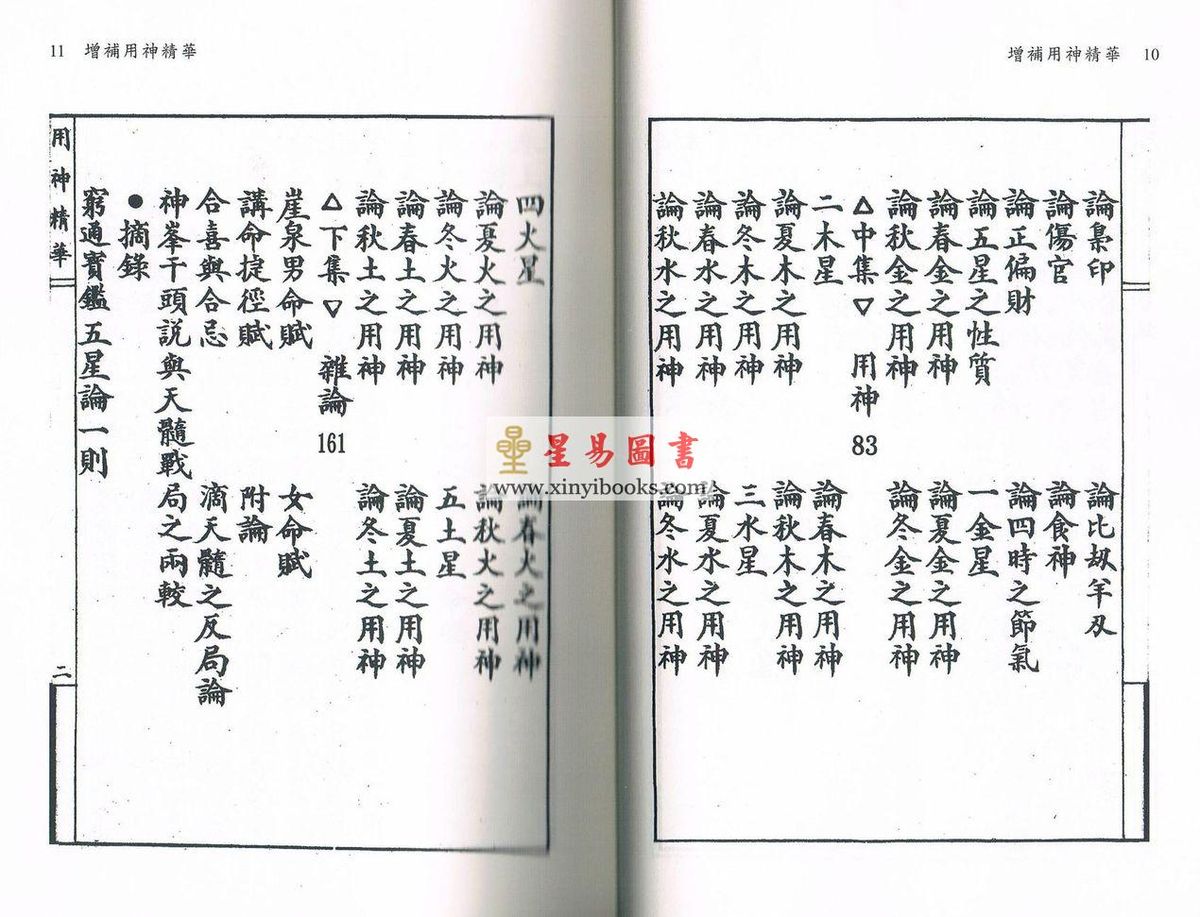 增補用神精華 10
論梟印 論比刼羊刃
論傷官 論食神
論正偏財 論四時之節氣
論五星之性質 一金星
論春金之用神 論夏金之用神
論秋金之用神 論冬金之用神
△中集▽ 用神 83
二木星 論春木之用神
論夏木之用神 論秋木之用神
論冬木之用神 三水星
論春水之用神 論夏水之用神
論秋水之用神 論冬水之用神
11 增補用神精華
四火星 論春火之用神
論夏火之用神 論秋火之用神
論冬火之用神 五土星
論春土之用神 論夏土之用神
論秋土之用神 論冬土之用神
△下集▽ 雜論 161
崖泉男命賦 女命賦
講命捷徑賦 附論
合喜與合忌 滴天髓之反局論
神峯干頭說與天髓戰局之兩較
●摘錄
窮通寶鑑五星論一則
用神精華
二
星易圖書
www.xinyibooks.com